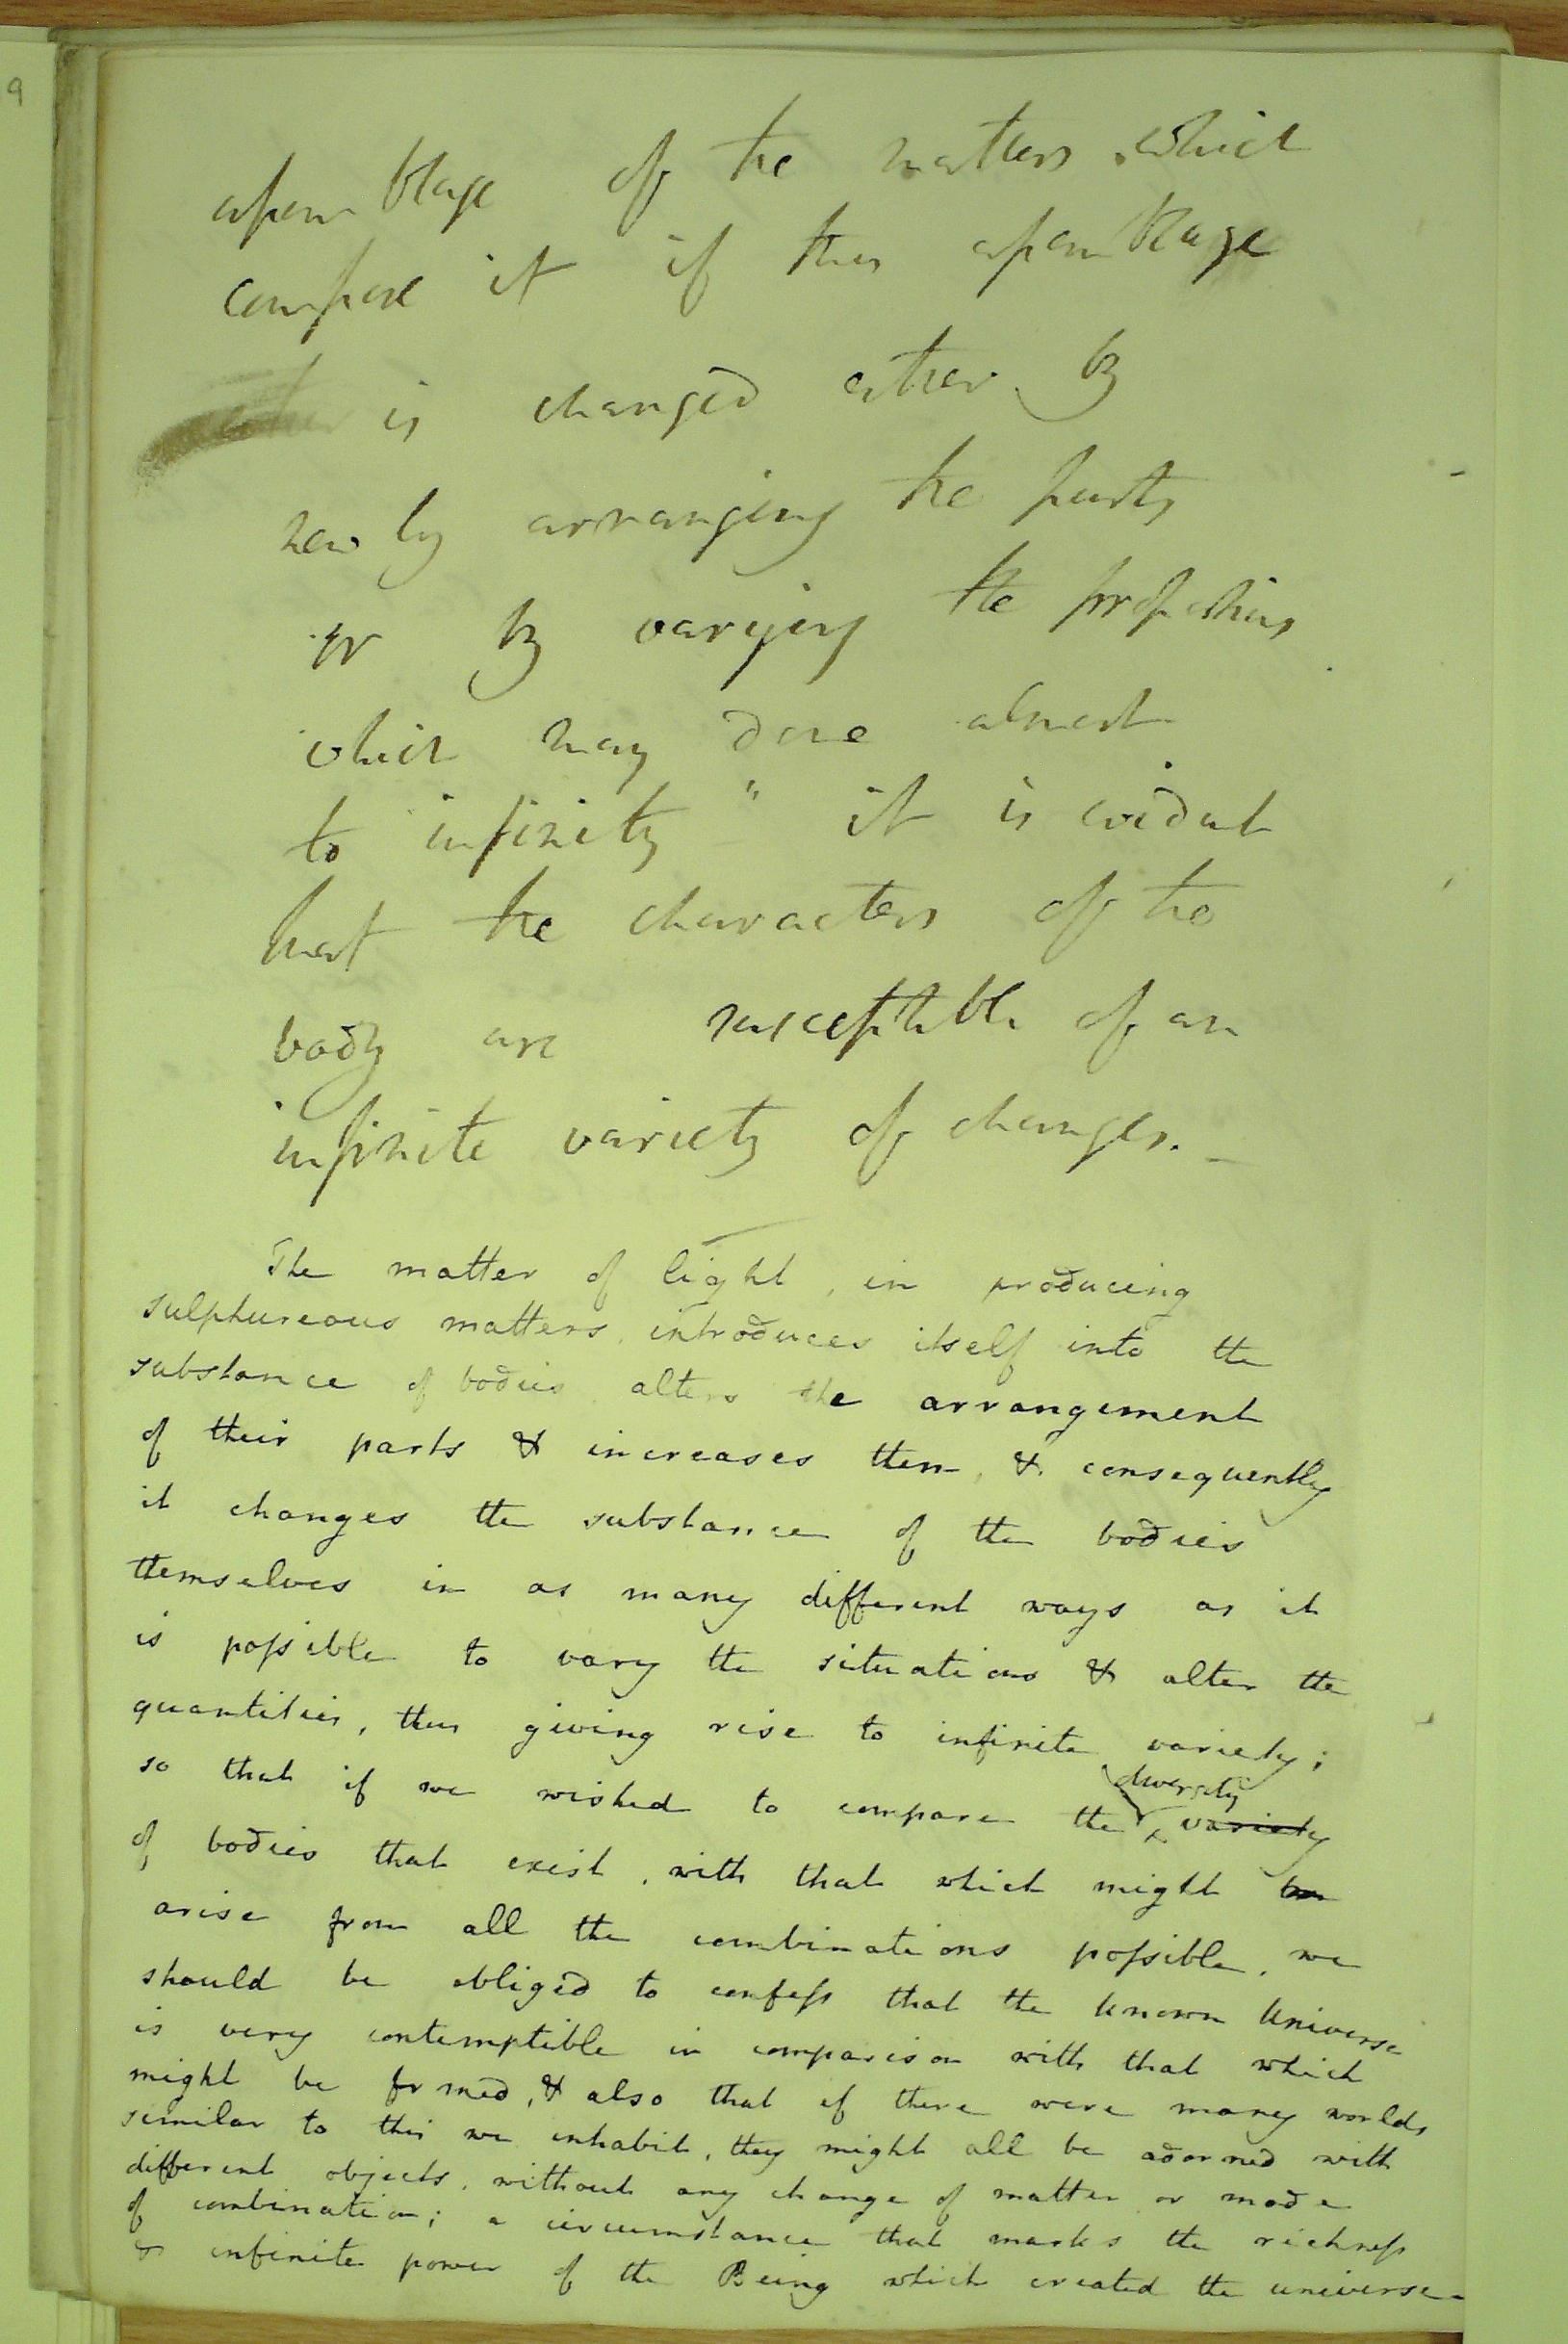 9
assemblage of the matters which
compose it if this assemblage
is changed either by
newly arranging the parts
or by varying the proportions
which may done almost
to infinity " it is evident
that the characters of the
body are susceptible of an
infinite variety of changes. _
The matter of light, in producing
sulphureous matters, introduces itself into the
substance of bodies alters the arrangement
of their parts & increases them, & consequently
it changes the substance of the bodies
themselves in as many different ways as it
is possible to vary the situations & alter the
quantities, thus giving rise to infinite variety;
diversity
so that if we wished to compare the variety
of bodies that exist, with that which might be
arise from all the combinations possible, we
should be obliged to confess that the known Universe
is very contemptible in comparison with that which
might be formed, & also that if there were many worlds
similar to this we inhabit, they might all be adorned with
different objects, without any change of matter or mode
of combination; a circumstance that marks the richness
& infinite power of the Being which created the universe -